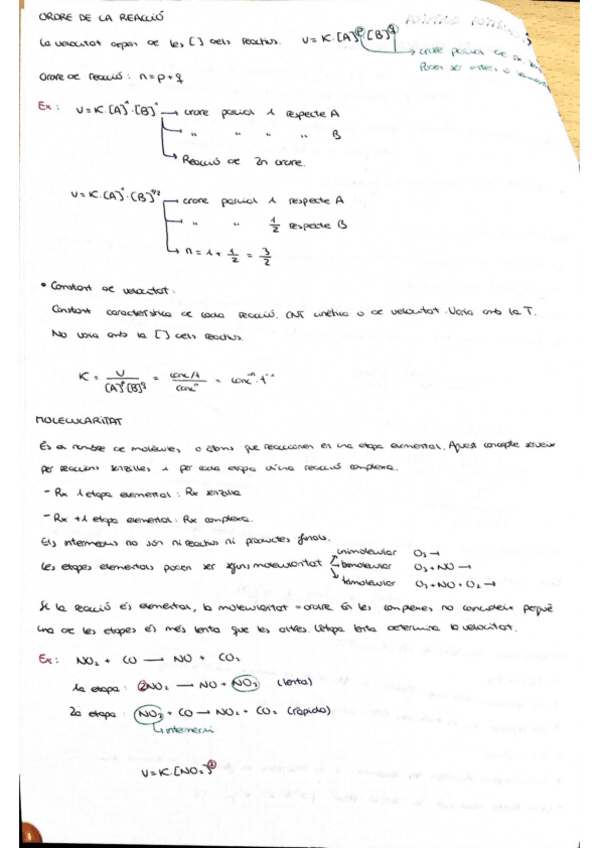 ORDRE DE LA REACCIÓ
La velocitat depèn de les [ ] dels reactius. V=K·[A]^p·[B]^q
→ ordre parcial de
Poden ser enters o
Ordre de reacció: n=p+q
Ex: V=K·[A]^1·[B]^1 → ordre parcial 1 respecte A
→ " " " " B
→ Reacció de 2n ordre.
V=K·[A]^1·[B]^1/2 → ordre parcial 1 respecte A
→ " " 1/2 respecte B
→ n = 1 + 1/2 = 3/2
• Constant de velocitat:
Constant característica de cada reacció. CNT cinètica o de velocitat. Varia amb la T.
No varia amb la [ ] dels reactius.
K = V/[A]^p[B]^q = conc/t/conc^n = conc^-n · t^-1
MOLECULARITAT
És el nombre de molècules o àtoms que reaccionen en una etapa elemental. Aquest concepte serveix
per reaccions senzilles i per cada etapa d'una reacció complexa.
- Rx 1 etapa elemental: Rx senzilla
- Rx +1 etapa elemental: Rx complexa.
Els intermedis no són ni reactius ni productes finals.
Les etapes elementals poden ser segons molecularitat
unimolecular O3 →
bimolecular O3 + NO →
trimolecular O3 + NO + O2 →
Si la reacció és elemental, la molecularitat = ordre. En les complexes no coincideix perquè
una de les etapes és més lenta que les altres. L'etapa lenta determina la velocitat.
Ex: NO2 + CO → NO + CO2
1a etapa: 2NO2 → NO + NO3 (lenta)
2a etapa: NO3 + CO → NO2 + CO2 (ràpida)
→ intermedi
V=K·[NO2]^2